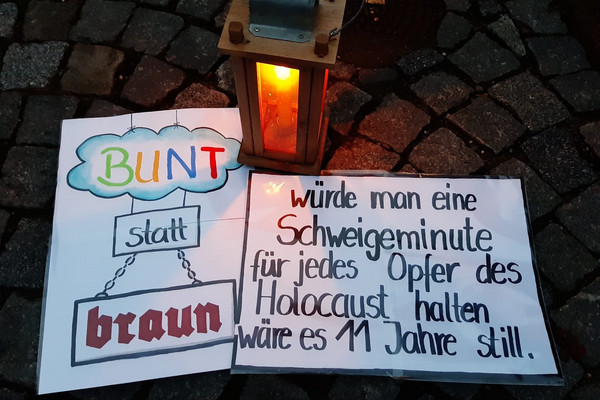 BUNT
statt
braun
würde man eine
Schweigeminute
für jedes Opfer des
Holocaust halten
wäre es 11 Jahre still.